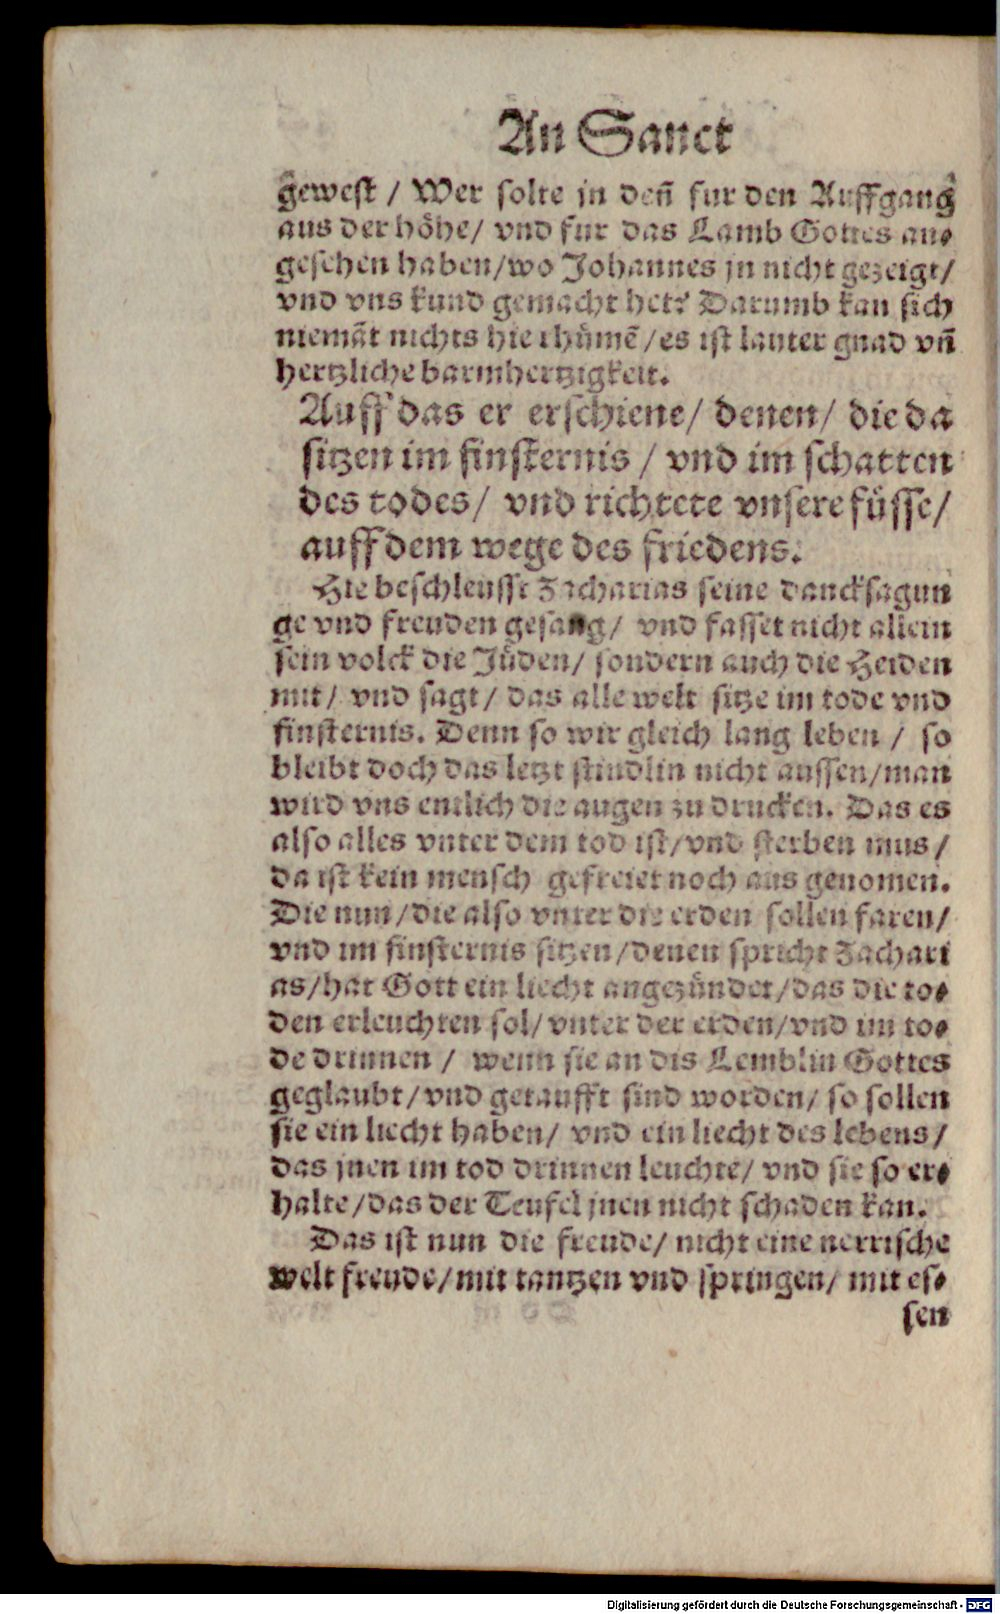 An Sanct
gewest / Wer solte jn deñ fur den Auffgang
aus der höhe / vnd fur das Lamb Gottes an⸗
gesehen haben / wo Johannes jn nicht gezeigt /
vnd vns kund gemacht het? Darumb kan sich
niemãt nichts hie rhůmẽ / es ist lauter gnad vñ
hertzliche barmhertzigkeit.
Auff das er erschiene / denen / die da
sitzen im finsternis / vnd im schatten
des todes / vnd richtete vnsere füsse /
auff dem wege des friedens.
Hie beschleusst Zacharias seine dancksagun
ge vnd freuden gesang / vnd fasset nicht allein
sein volck die Jüden / sondern auch die Heiden
mit / vnd sagt / das alle welt sitze im tode vnd
finsternis. Denn so wir gleich lang leben / so
bleibt doch das letzt stündlin nicht aussen / man
wird vns entlich die augen zu drucken. Das es
also alles vnter dem tod ist / vnd sterben mus /
da ist kein mensch gefreiet noch aus genomen.
Die nun / die also vnter die erden sollen faren /
vnd im finsternis sitzen / denen spricht Zachari
as / hat Gott ein liecht angezündet / das die to⸗
den erleuchten sol / vnter der erden / vnd im to⸗
de drinnen / wenn sie an dis Lemblin Gottes
geglaubt / vnd getaufft sind worden / so sollen
sie ein liecht haben / vnd ein liecht des lebens /
das jnen im tod drinnen leuchte / vnd sie so er⸗
halte / das der Teufel jnen nicht schaden kan.
Das ist nun die freude / nicht eine nerrische
welt freude / mit tantzen vnd springen / mit es⸗
sen
Digitalisierung gefördert durch die Deutsche Forschungsgemeinschaft - DFG